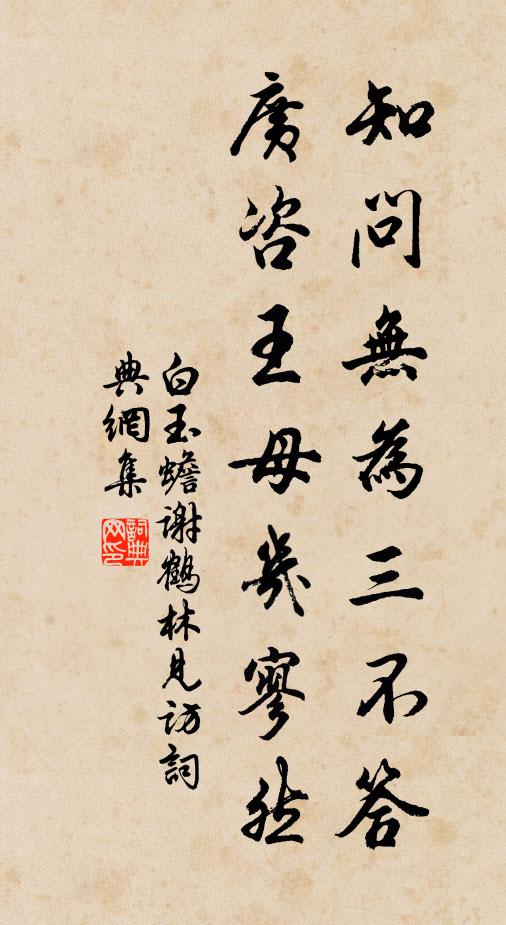 知問無為三不答
廣咨王母幾寥然
白玉蟾謝鶴林見訪詞
典網集
詞典網印